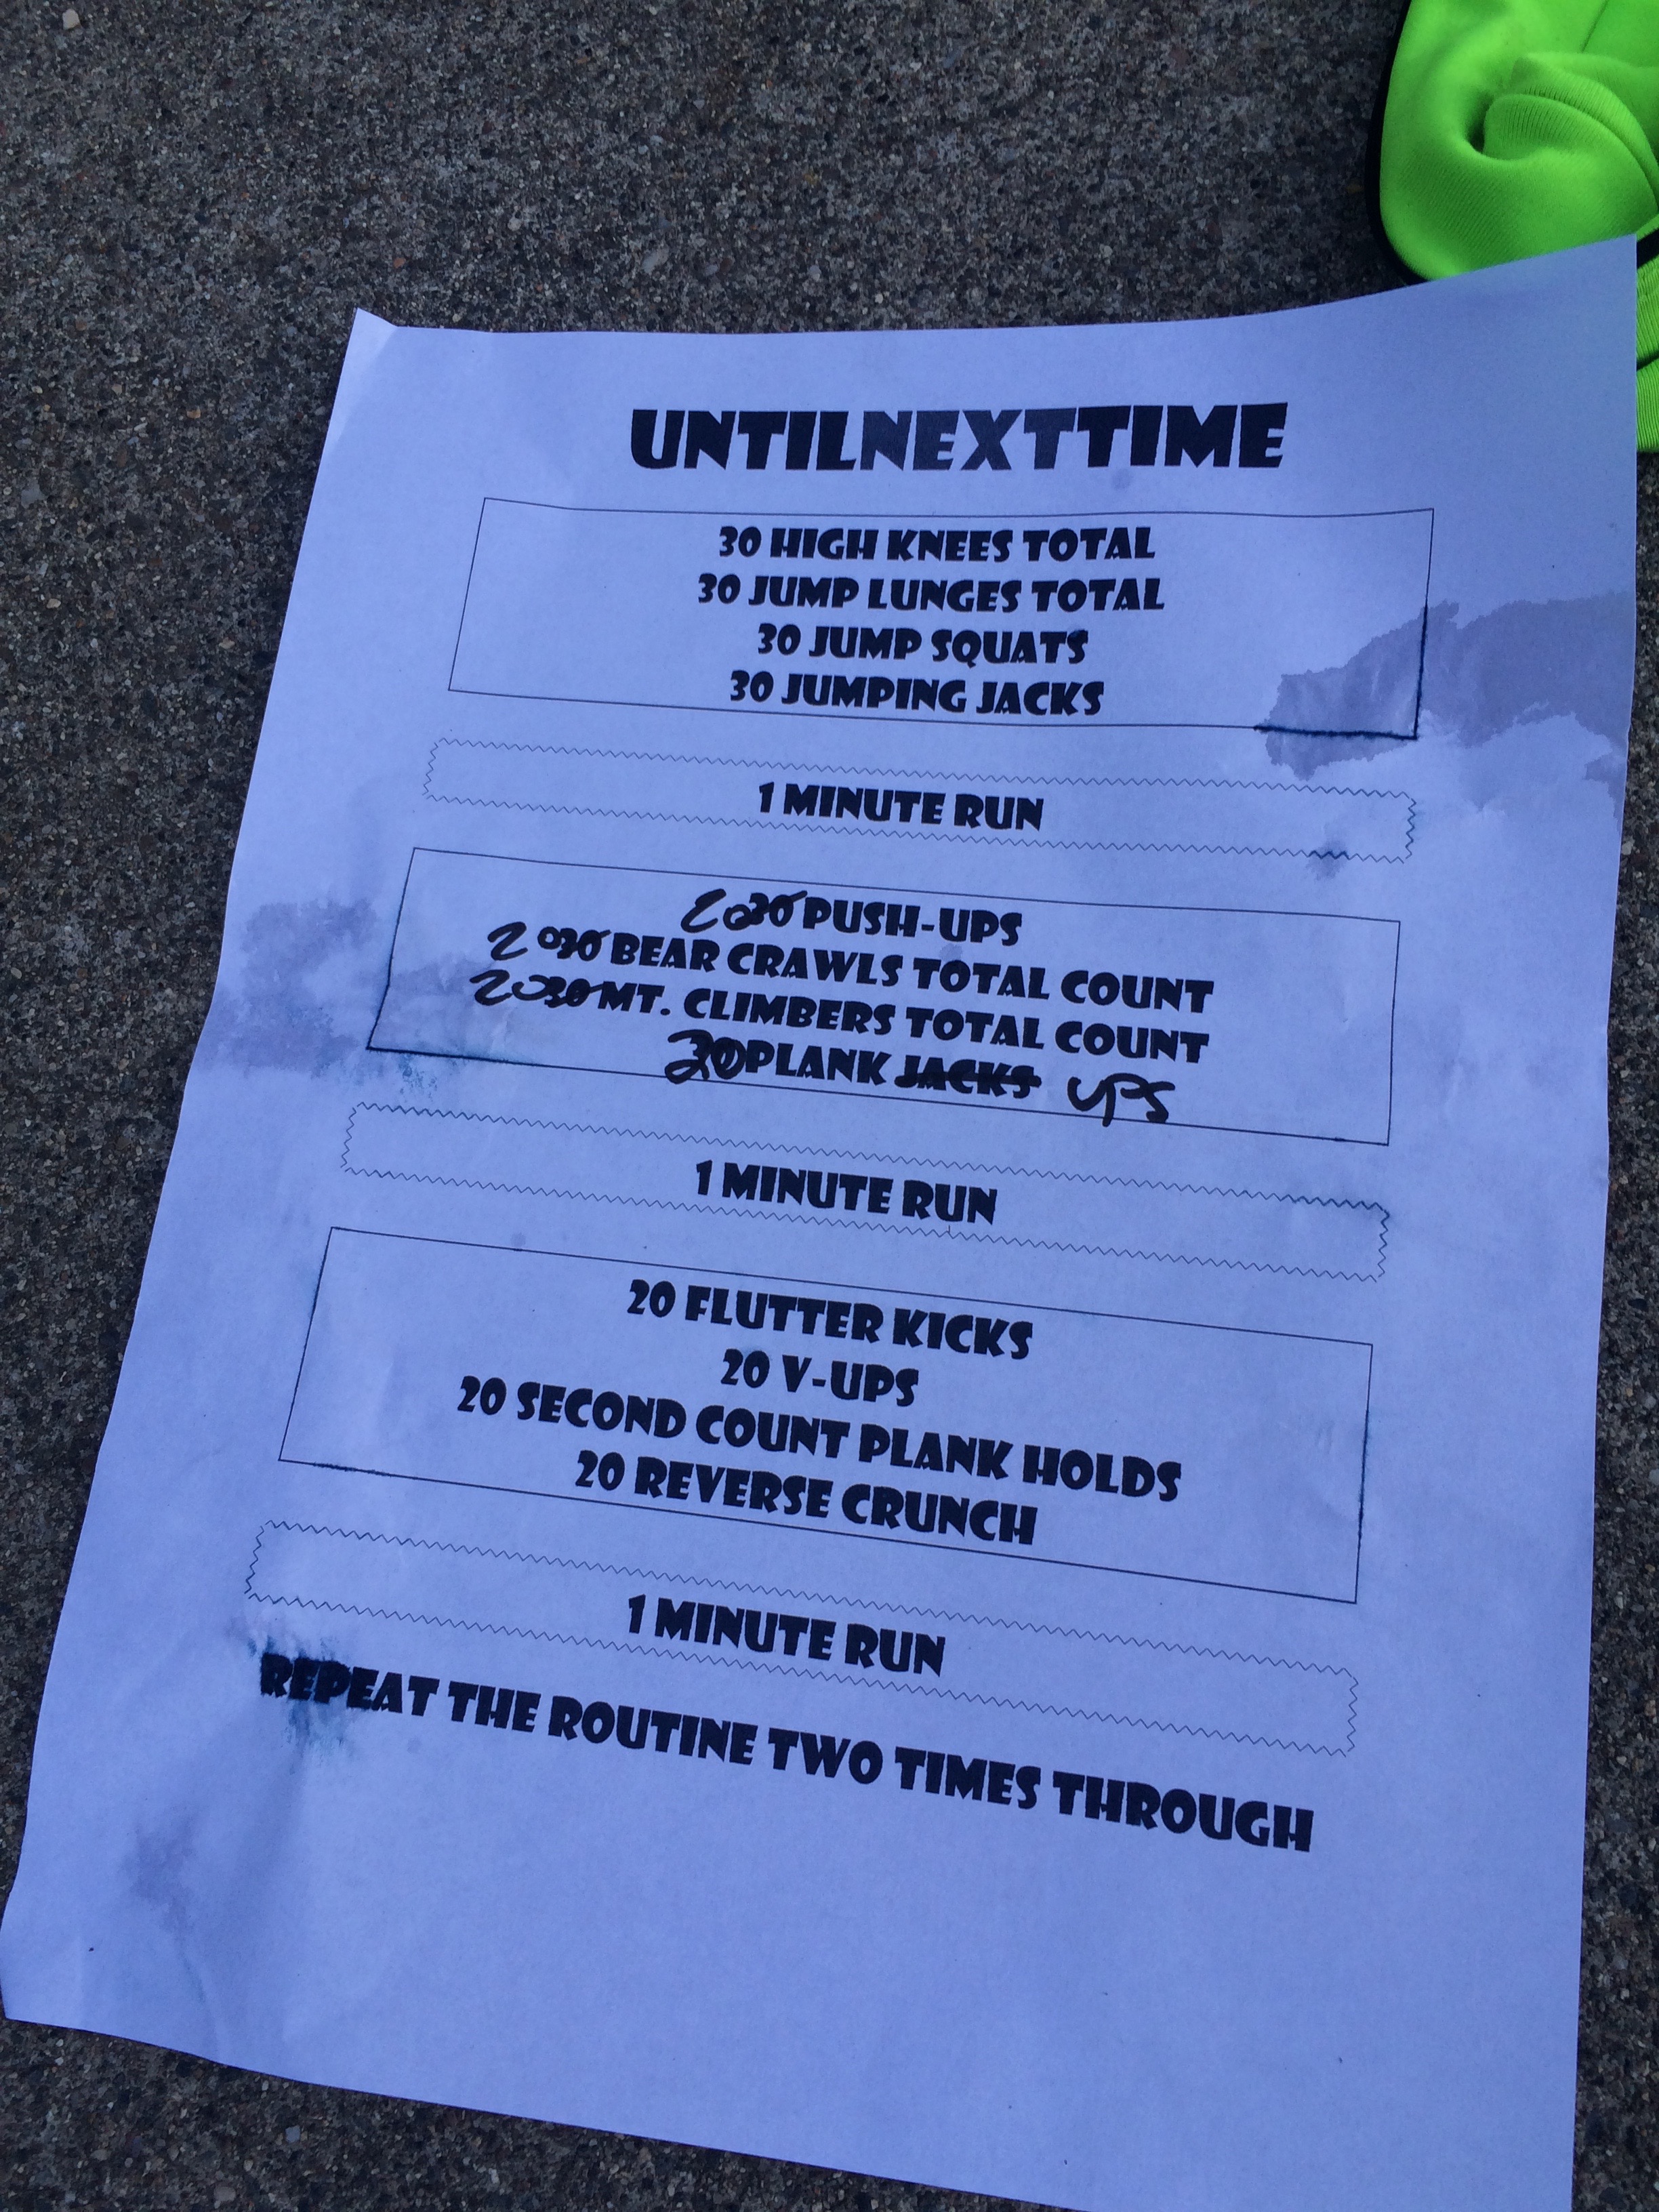 UNTILNEXTTIME
30 HIGH KNEES TOTAL
30 JUMP LUNGES TOTAL
30 JUMP SQUATS
30 JUMPING JACKS
1 MINUTE RUN
20 30 PUSH-UPS
20 30 BEAR CRAWLS TOTAL COUNT
20 30 MT. CLIMBERS TOTAL COUNT
20 PLANK JACKS UPS
1 MINUTE RUN
20 FLUTTER KICKS
20 V-UPS
20 SECOND COUNT PLANK HOLDS
20 REVERSE CRUNCH
1 MINUTE RUN
REPEAT THE ROUTINE TWO TIMES THROUGH